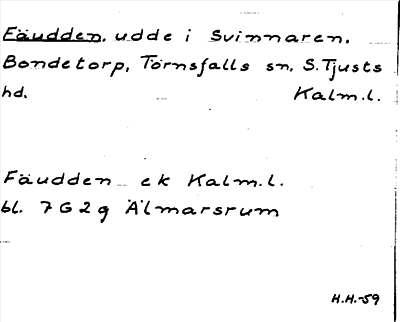 Fäudden. udde i Svinnaren.
Bondetorp, Törnsfalls sn. S. Tjusts
hd. Kalm.l.
Fäudden ek Kalm.l.
bl. 7G2g Älmarsrum
H.H.-59